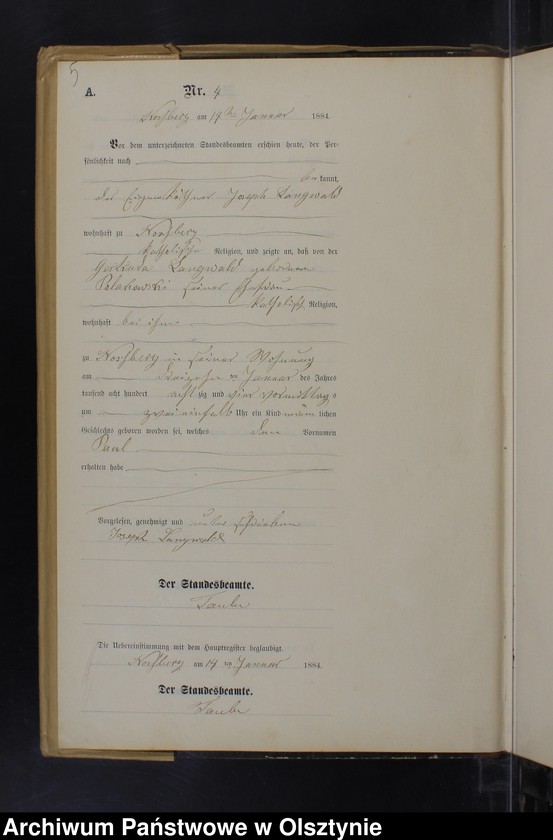 5
A. Nr. 4
am 19ten Januar 1884.
Vor dem unterzeichneten Standesbeamten erschien heute, der Per-
sönlichkeit nach
be kannt,
der Eigenkäthner Joseph Langwald
wohnhaft zu
katholischer Religion, und zeigte an, daß von der
Langwald geborenen
seiner Ehefrau
katholisch Religion,
wohnhaft bei ihm
zu in seiner Wohnung
am dreizehn ten Januar des Jahres
tausend acht hundert acht zig und vier Vormittags
um zweieinhalb Uhr ein Kind männ lichen
Geschlechts geboren worden sei, welches den Vornamen
Paul
erhalten habe
Vorgelesen, genehmigt und unterschrieben
Joseph Langwald
Der Standesbeamte.
Die Uebereinstimmung mit dem Hauptregister beglaubigt.
am 19 ten Januar 1884.
Der Standesbeamte.
Archiwum Państwowe w Olsztynie